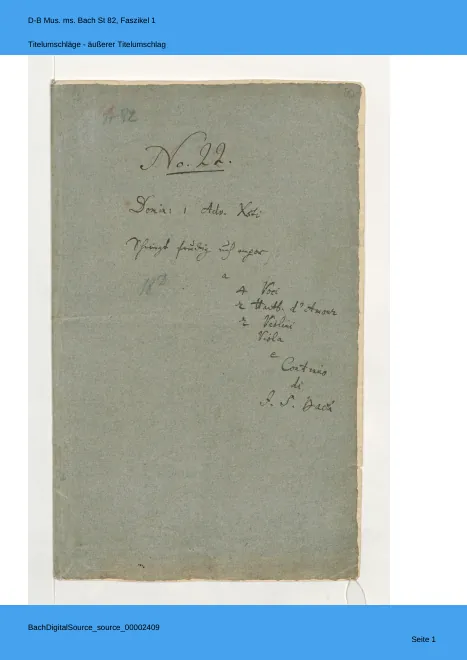 D-B Mus. ms. Bach St 82, Faszikel 1
Titelumschläge - äußerer Titelumschlag
St 82
No. 22.
Domin: 1 Adv. Xsti
Schwingt freudig euch empor,
a
4 Voci
2 Hautb. d'Amour
2 Violini
Viola
e
Continuo
di
J. S. Bach
BachDigitalSource_source_00002409
Seite 1